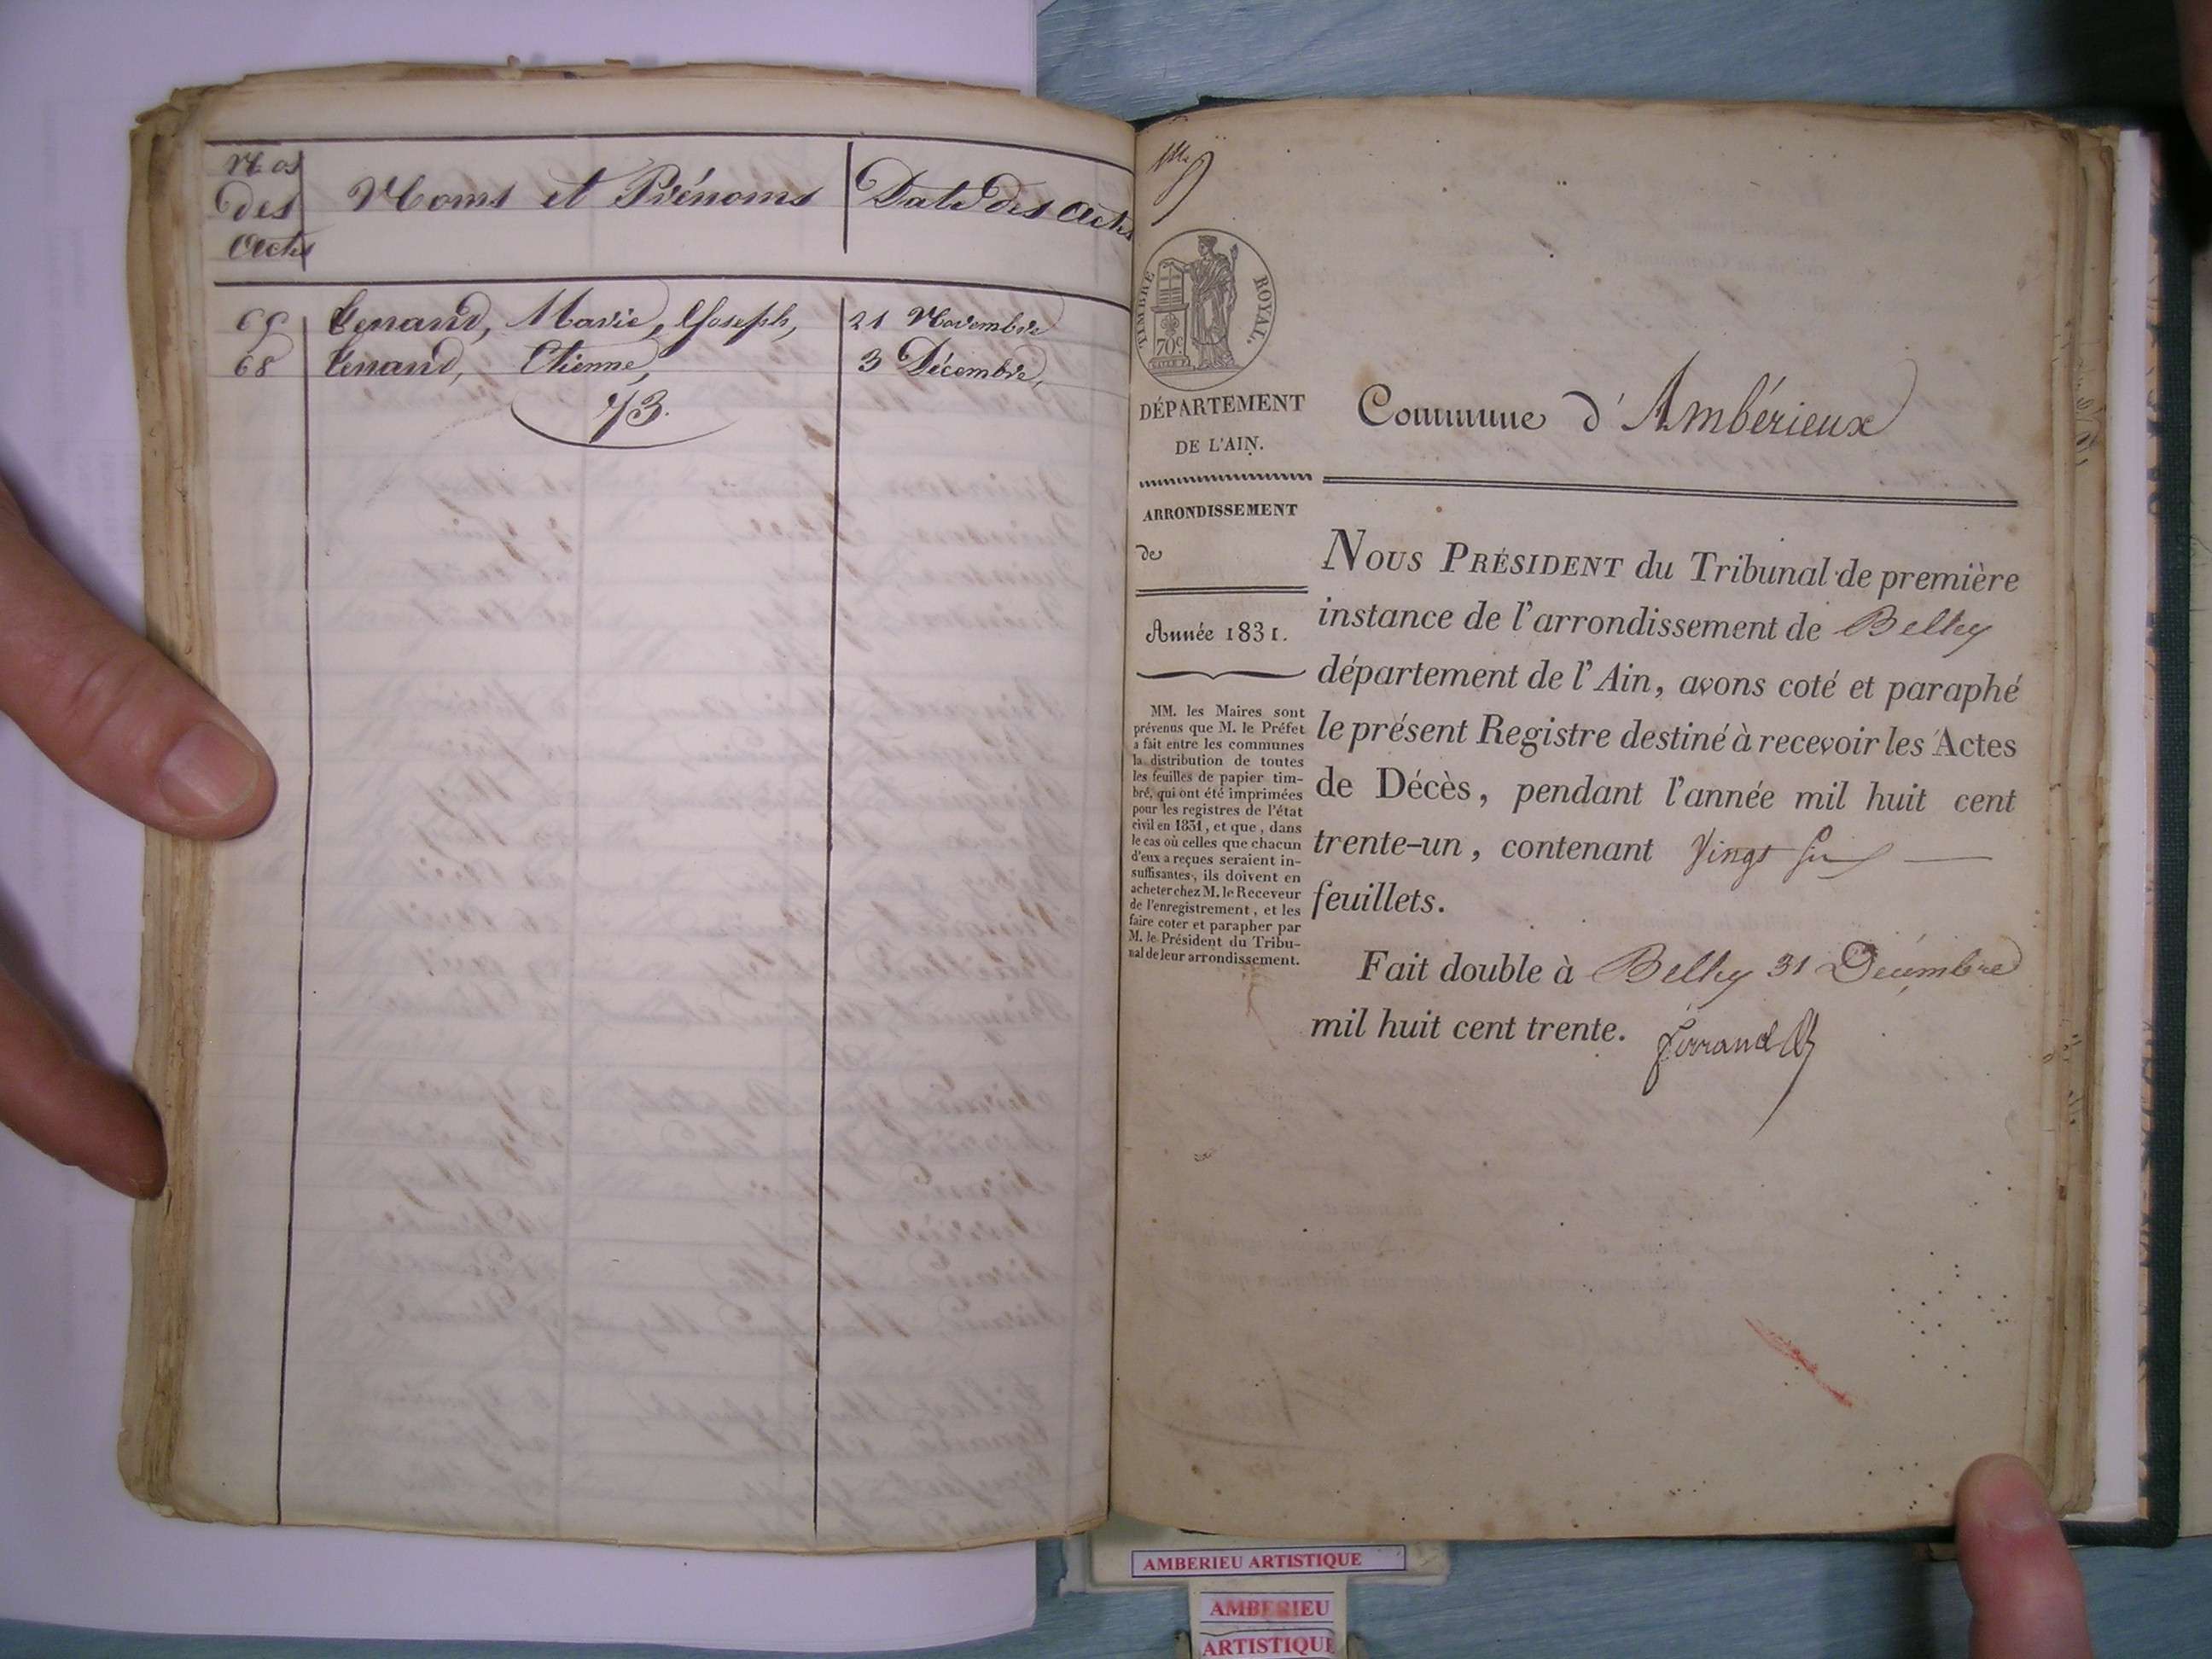 Nos
des
Actes
Noms et Prénoms
Date des Actes
69 Tenand, Marie, Joseph, 21 Novembre
68 Tenand, Etienne, 3 Décembre,
73.
TIMBRE ROYAL.
70c
DÉPARTEMENT
DE L'AIN.
ARRONDISSEMENT
de
Année 1831.
MM. les Maires sont
prévenus que M. le Préfet
a fait entre les communes
la distribution de toutes
les feuilles de papier tim-
bré, qui ont été imprimées
pour les registres de l'état
civil en 1831, et que, dans
le cas où celles que chacun
d'eux a reçues seraient in-
suffisantes, ils doivent en
acheter chez M. le Receveur
de l'enregistrement, et les
faire coter et parapher par
M. le Président du Tribu-
nal de leur arrondissement.
Commune d'Ambérieux
NOUS PRÉSIDENT du Tribunal de première
instance de l'arrondissement de Belley
département de l'Ain, avons coté et paraphé
le présent Registre destiné à recevoir les Actes
de Décès, pendant l'année mil huit cent
trente-un, contenant Vingt six
feuillets.
Fait double à Belley 31 Décembre
mil huit cent trente.
ferrand
AMBERIEU ARTISTIQUE
AMBERIEU
ARTISTIQUE